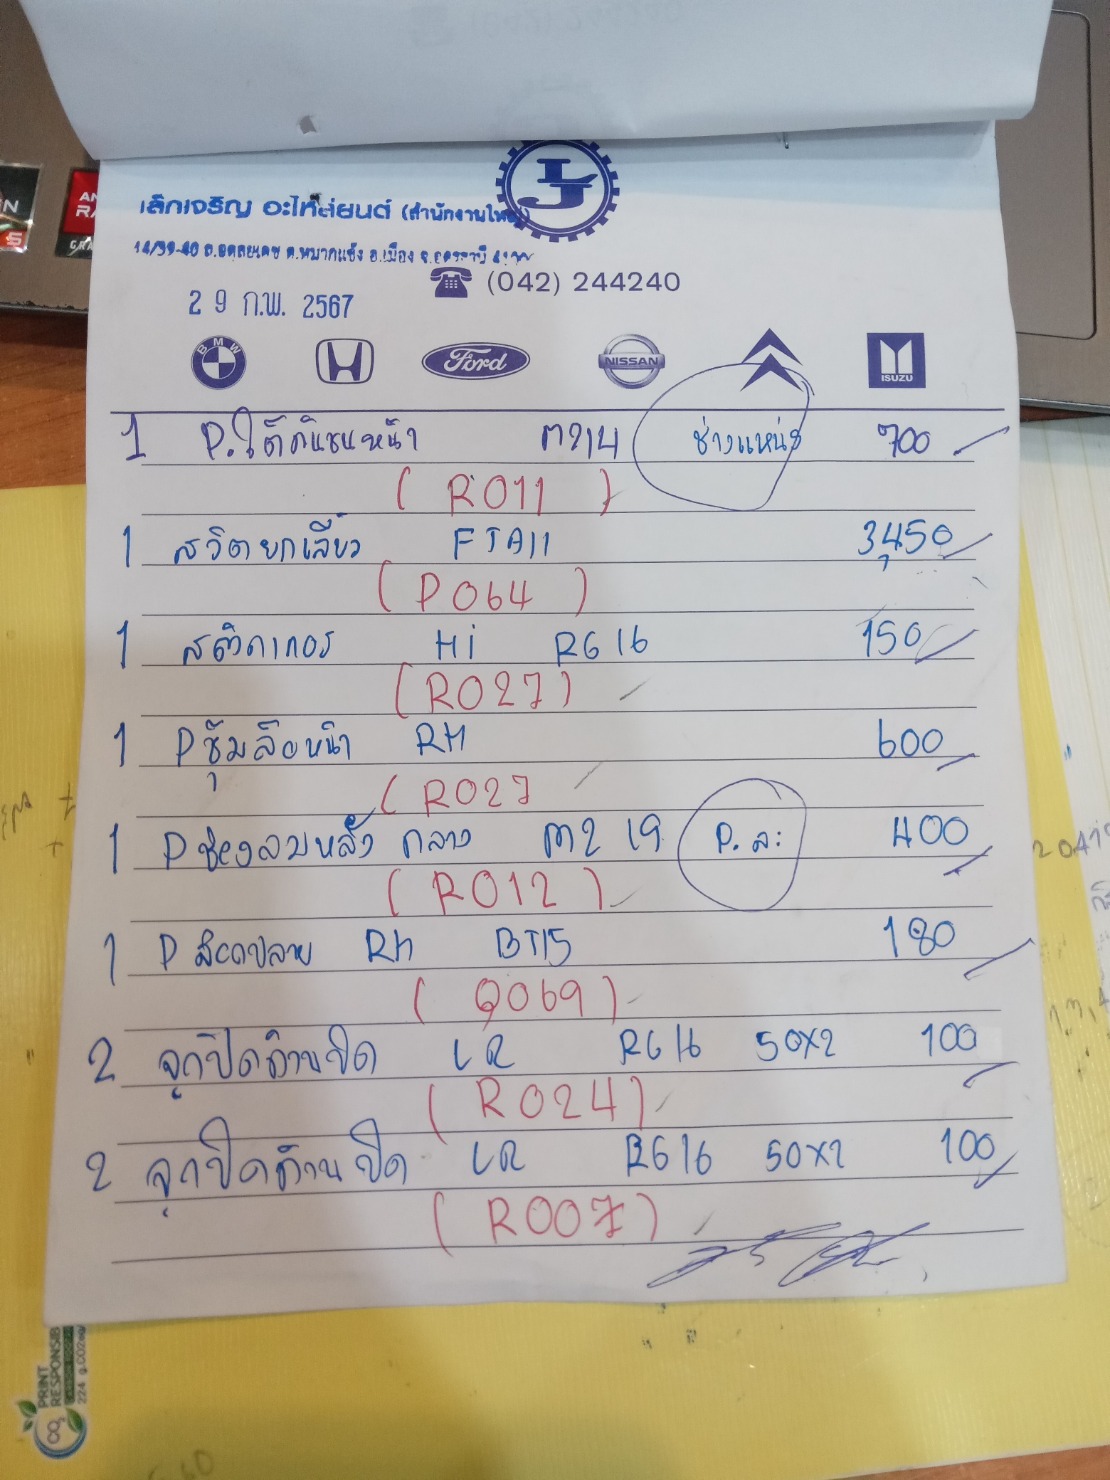 เล็กเจริญ อะไหล่ยนต์ (สำนักงานใหญ่)
14/39-40 ถ.อดุลยเดช ต.หมากแข้ง อ.เมือง จ.อุดรธานี
(042) 244240
29 ก.พ. 2567
BMW Ford NISSAN ISUZU
1 P.ใต้กันชนหน้า M214 ช่างแหน่ง 700
(R011)
1 สวิตยกเลี้ยว FJA11 3,450
(P064)
1 สติกเกอร์ Hi RG16 150
(R027)
1 P ซุ้มล้อหน้า RH 600
(R027
1 P ช่องลมหลัง กลาง M2 19 P.ละ 400
(R012)
1 P RH BT15 180
(Q069)
2 จุกปิดด้านปิด LR RG16 50x2 100
(R024)
2 จุกปิดด้านปิด LR RG16 50x2 100
(R007)
PRINT
RESPONSIB